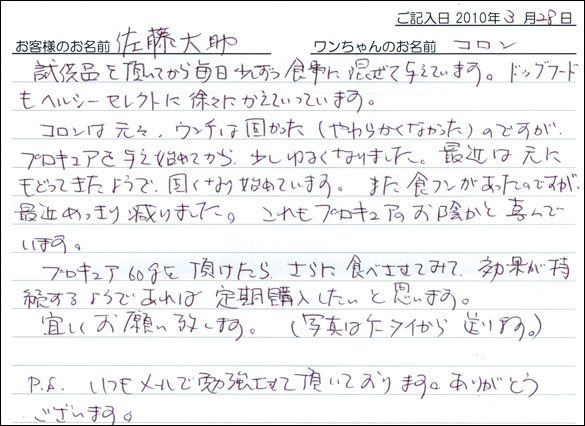 ご記入日 2010年 3 月 28 日
お客様のお名前 佐藤大助 ワンちゃんのお名前 コロン
試供品を頂いてから毎日少しずつ食事に混ぜて与えています。ドッグフード
もヘルシーセレクトに徐々にかえていっています。
コロンは元々、ウンチは固かった(やわらかくなかった)のですが、
プロキュアを与え始めてから、少しゆるくなりました。最近は元に
もどってきたようで、固くなり始めています。また食フンがあったのですが、
最近めっきり減りました。これもプロキュアのお陰かと喜んで
います。
プロキュア60gを頂けたら、さらに食べさせてみて、効果が持
続するようであれば定期購入したいと思います。
宜しくお願い致します。(写真はケータイから送ります。)
P.S. いつもメールで勉強させて頂いております。ありがとう
ございます。